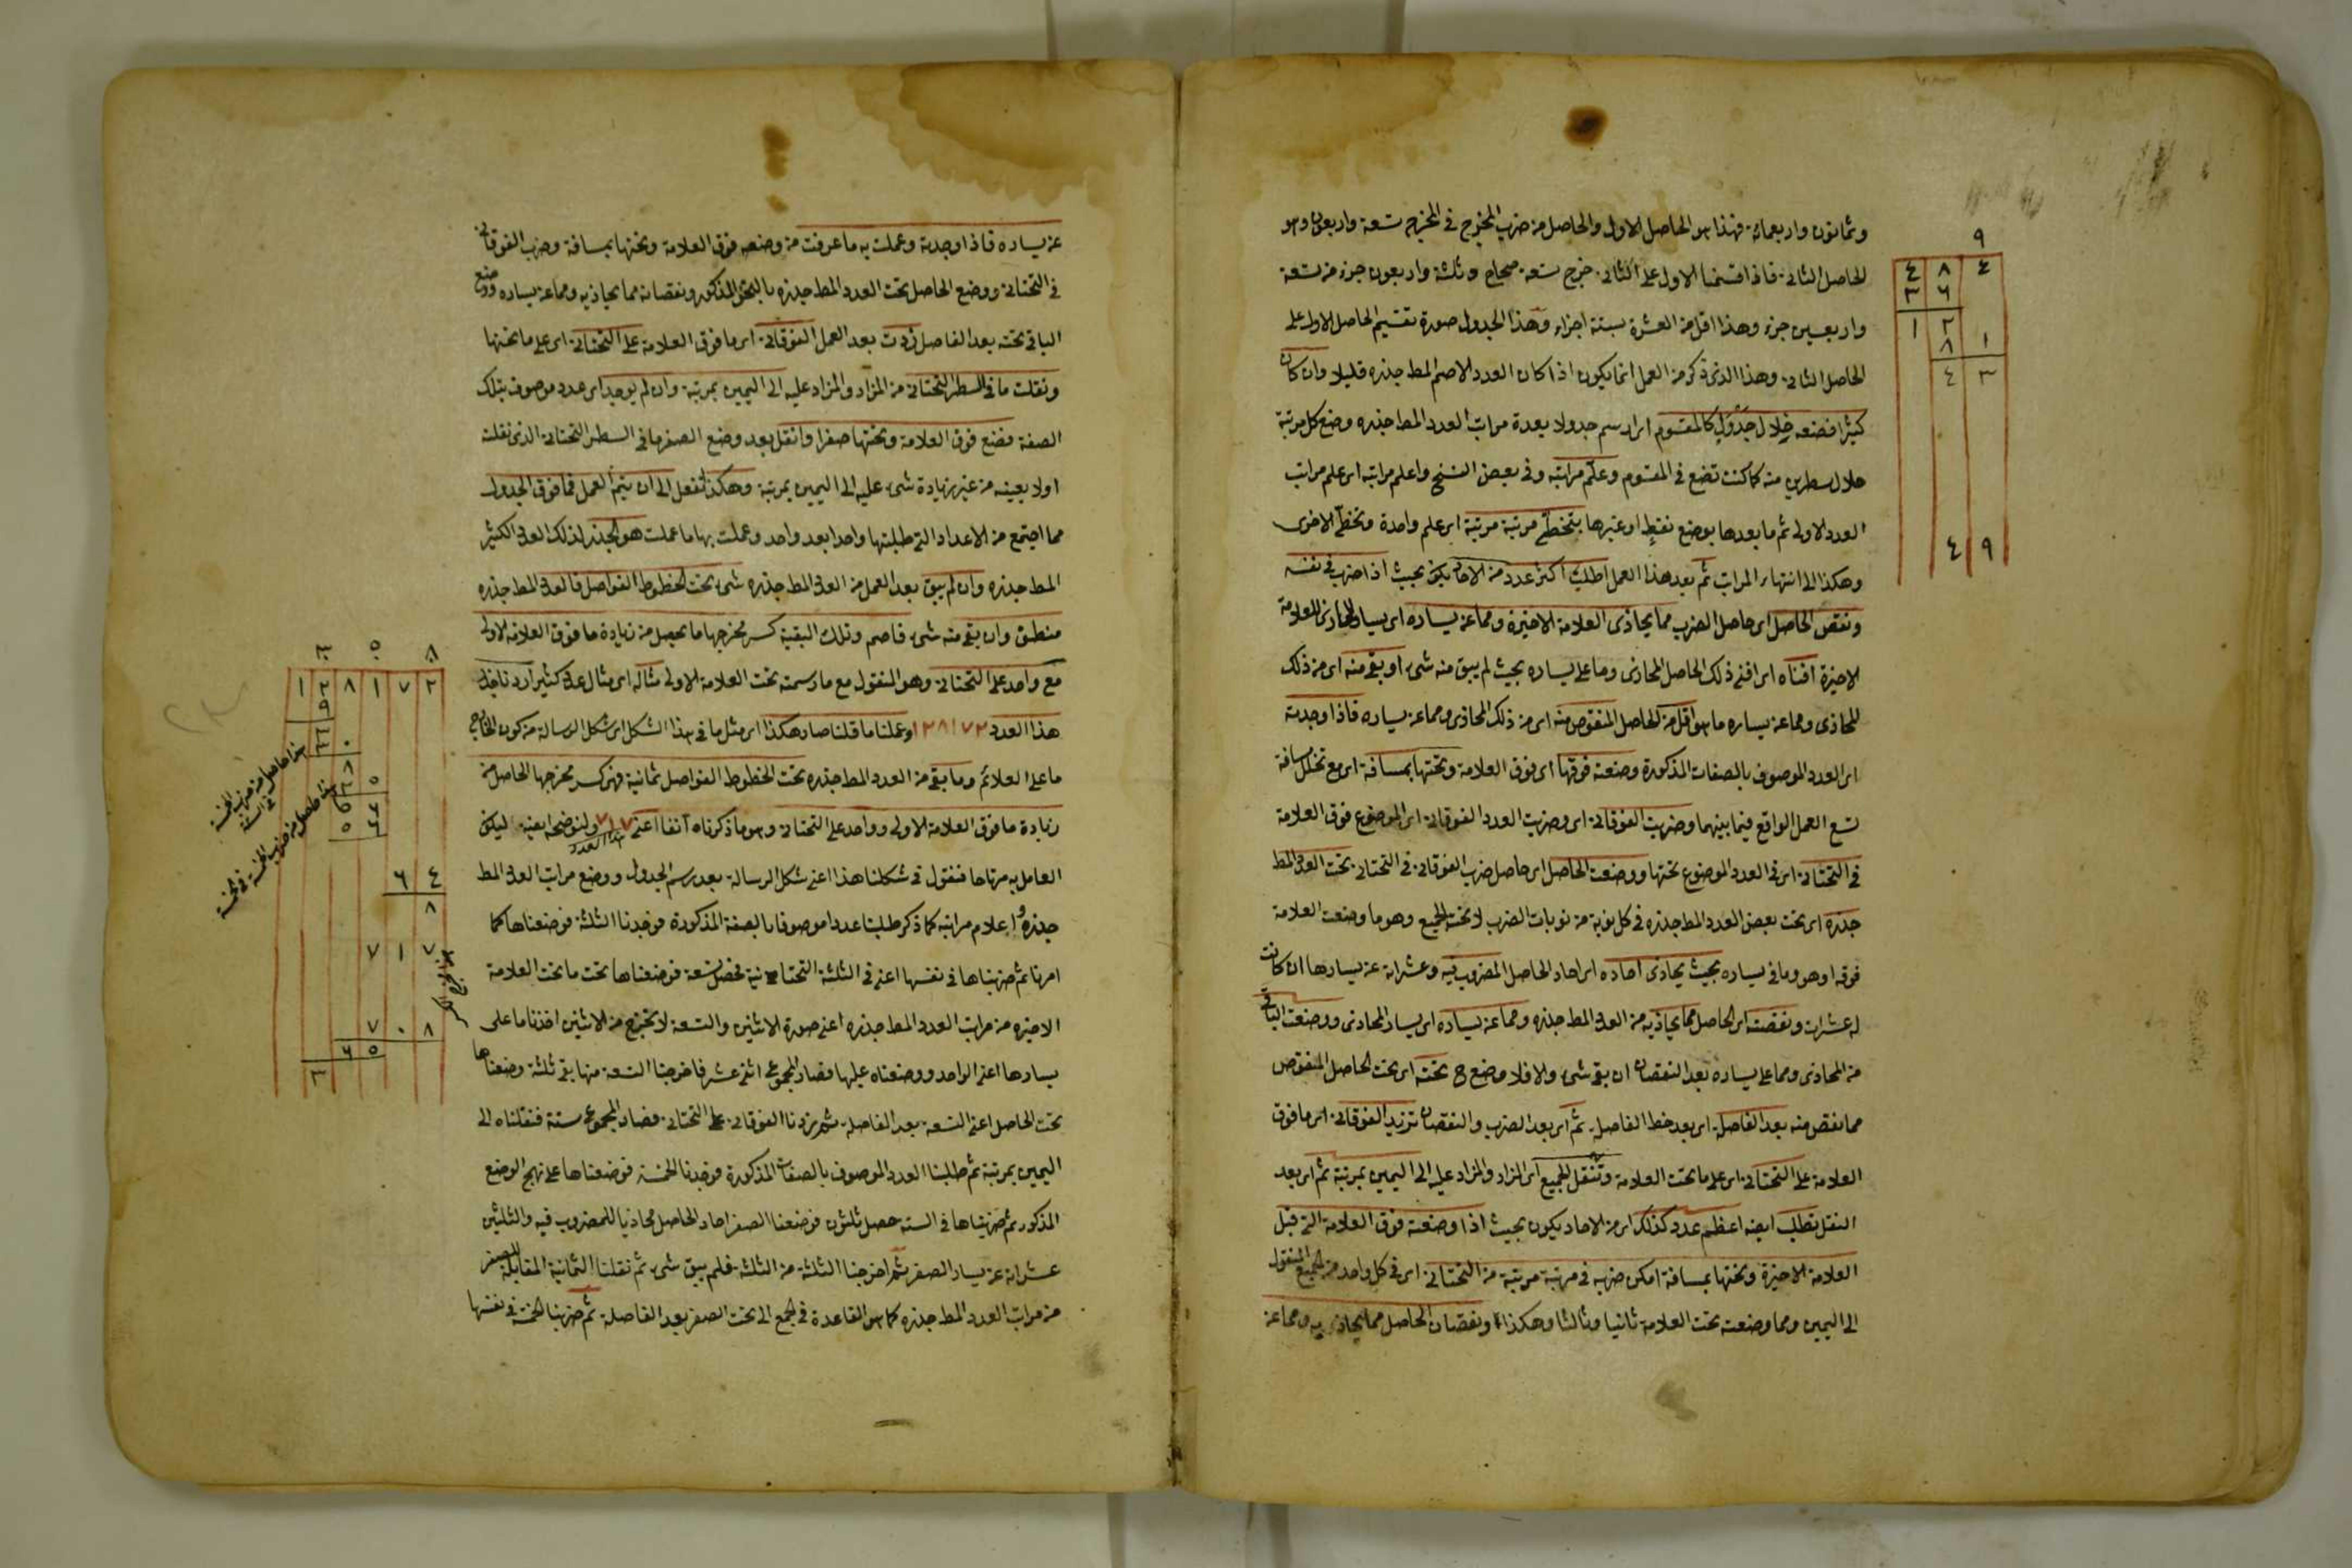 وثمانون واربعمائة فهذا هو الحاصل الاول والحاصل من ضرب المخرج في المخرج تسعة واربعون وهو
الحاصل الثاني فاذا قسمنا الاول على الثاني خرج تسعة صحاح وثلثة واربعون جزء من تسعة
واربعين جزء وهذا اقل من العشرة بستة اجزاء وهذا الجدول صورة تقسيم الحاصل الاول على
الحاصل الثاني وهذا الذي ذكر من العمل انما يكون اذا كان العدد الاصم المط جذره قليلا وان كان
كثيرا فضعه خلال جدول كالمقسوم اي ارسم جدولا بعدة مراتب العدد المط جذره وضع كل مرتبة
خلال سطرين منه كما كنت تضع في المقسوم وعلم مراتبه وفي بعض النسخ واعلم مراتبه اي علم مراتب
العدد الاولى ثم ما بعدها بوضع نقط او غيرها بتخطي مرتبة مرتبة اي علم واحدة وتخط الاخرى
وهكذا الى انتهاء المراتب ثم بعد هذا العمل اطلب اكثر عدد من الاحاد يكون بحيث اذا ضرب في نفسه
ونقص الحاصل اي حاصل الضرب مما يحاذي العلامة الاخيرة ومما عن يساره اي يسار المحاذي للعلامة
الاخيرة افناه اي افنى ذلك الحاصل المحاذي وما على يساره بحيث لم يبق منه شيء او بقي منه اي من ذلك
المحاذي ومما عن يساره ما هو اقل من الحاصل المنقوص منه اي من ذلك المحاذي ومما عن يساره فاذا وجدته
اي العدد الموصوف بالصفات المذكورة وضعته فوقها اي فوق العلامة وتحتها بمسافة اي مع تخلل مسافة
تسع العمل الواقع فيما بينهما وضربت الفوقاني اي وضربت العدد الفوقاني اي الموضوع فوق العلامة
في التحتاني اي في العدد الموضوع تحتها ووضعت الحاصل اي حاصل ضرب الفوقاني في التحتاني تحت العدد المط
جذره اي تحت بعض العدد المط جذره في كل نوبة من نوبات الضرب لا تحت الجميع وهو ما وضعت العلامة
فوقه او هو وما في يساره بحيث يحاذي احاده اي احاد الحاصل المضروب فيه وعشراته عن يسارها ان كانت
له عشرات ونقصته اي الحاصل مما يحاذيه من العدد المط جذره ومما عن يساره اي يسار المحاذي ووضعت الباقي
من المحاذي ومما على يساره بعد النقصان ان بقي شيء والا فلا وضع تحته اي تحت الحاصل المنقوص
مما نقص منه بعد الفاصل اي بعد خط الفاصل ثم اي بعد الضرب والنقصان تزيد الفوقاني اي ما فوق
العلامة على التحتاني اي على ما تحت العلامة وتنقل الجميع اي المزاد والمزاد عليه الى اليمين بمرتبة ثم اي بعد
النقل تطلب ايضا اعظم عدد كذلك اي من الاحاد يكون بحيث اذا وضعته فوق العلامة التي قبل
العلامة الاخيرة وتحتها بمسافة امكن ضربه في مرتبة مرتبة من التحتاني اي في كل واحد من الجميع المنقول
الى اليمين ومما وضعته تحت العلامة ثانيا وثالثا وهكذا ونقصان الحاصل مما يحاذيه ومما عن
٩
٤ ٨ ٤
٣ ٦
١ ٢
٨ ١
٤ ٣
٤ ٩
عن يساره فاذا وجدته وعملت به ما عرفت من وضعه فوق العلامة وتحتها بمسافة وضرب الفوقاني
في التحتاني ووضع الحاصل تحت العدد المط جذره بالنحو المذكور ونقصانه مما يحاذيه ومما عن يساره ووضع
الباقي تحته بعد الفاصل زدت بعد العمل الفوقاني اي ما فوق العلامة على التحتاني اي على ما تحتها
ونقلت ما في السطر التحتاني من المزاد والمزاد عليه الى اليمين بمرتبة وان لم يوجد اي عدد موصوف بتلك
الصفة فضع فوق العلامة وتحتها صفرا وانقل بعد وضع الصفر ما في السطر التحتاني الذي نقلت
اولا بعينه من غير زيادة شيء عليه الى اليمين بمرتبة وهكذا تفعل الى ان يتم العمل فما فوق الجدول
مما اجتمع من الاعداد التي طلبتها واحدا بعد واحد وعملت بها ما عملت هو الجذر لذلك العدد الكثير
المط جذره وان لم يبق بعد العمل من العدد المط جذره شيء تحت الخطوط الفواصل فالعدد المط جذره
منطق وان بقي منه شيء فاصم وتلك البقية كسر مخرجها ما يحصل من زيادة ما فوق العلامة الاولى
مع واحد على التحتاني وهو المنقول مع ما رسمته تحت العلامة الاولى مثاله اي مثال عدد كثير اردنا جذر
هذا العدد ١٢٨١٧٢ وعملنا ما قلنا صار هكذا اي مثل ما في هذا الشكل اي شكل الرسالة من كون الخارج
ما على العلائم وما بقي من العدد المط جذره تحت الخطوط الفواصل ثمانية فهي كسر مخرجها الحاصل من
زيادة ما فوق العلامة الاولى وواحد على التحتاني وهو ما ذكرناه آنفا اعني ٧١٧ ولنوضحه ايضا ليكون
هذا العدد
العامل به مرتاحا فنقول في شكلنا هذا اعني شكل الرسالة بعد رسم الجدول ووضع مراتب العدد المط
جذره واعلام مراتبه كما ذكر طلبنا عددا موصوفا بالصفة المذكورة فوجدنا الثلثة فوضعناها كما
امرنا ثم ضربناها في نفسها اعني في الثلثة التحتانية فحصل تسعة فوضعناها تحت ما تحت العلامة
الاخيرة من مراتب العدد المط جذره اعني صورة الاثنين والتسعة لا تخرج من الاثنين اخذنا ما على
يسارها اعني الواحد ووضعناه عليها فصار المجموع اثني عشر فاخرجنا التسعة منها بقي ثلثة وضعناها
تحت الحاصل اعني التسعة بعد الفاصلة ثم زدنا الفوقاني على التحتاني فصار المجموع ستة فنقلناه الى
اليمين بمرتبة ثم طلبنا العدد الموصوف بالصفات المذكورة فوجدنا الخمسة فوضعناها على نهج الوضع
المذكور ثم ضربناها في الستة حصل ثلثون فوضعنا الصفر احاد الحاصل محاذيا للمضروب فيه والثلثين
عشراته عن يسار الصفر ثم اخرجنا الثلثة من الثلثة فلم يبق شيء ثم نقلنا الثمانية المقابلة للصفر
من مراتب العدد المط جذره كما هو القاعدة في الجمع الى تحت الصفر بعد الفاصلة ثم ضربنا الخمسة في نفسها
٣ ٥ ٨
١ ٢ ٨ ١ ٧ ٢
٩
٣
٣ ٠
٨
٢ ٥
٥ ٦
٦ ٤
٨
٧ ١ ٧
٧ ٠ ٨
٦ ٥
٣
هذا حاصل من ضرب الخمسة في الستة
هذا حاصل من ضرب الخمسة في خمسة